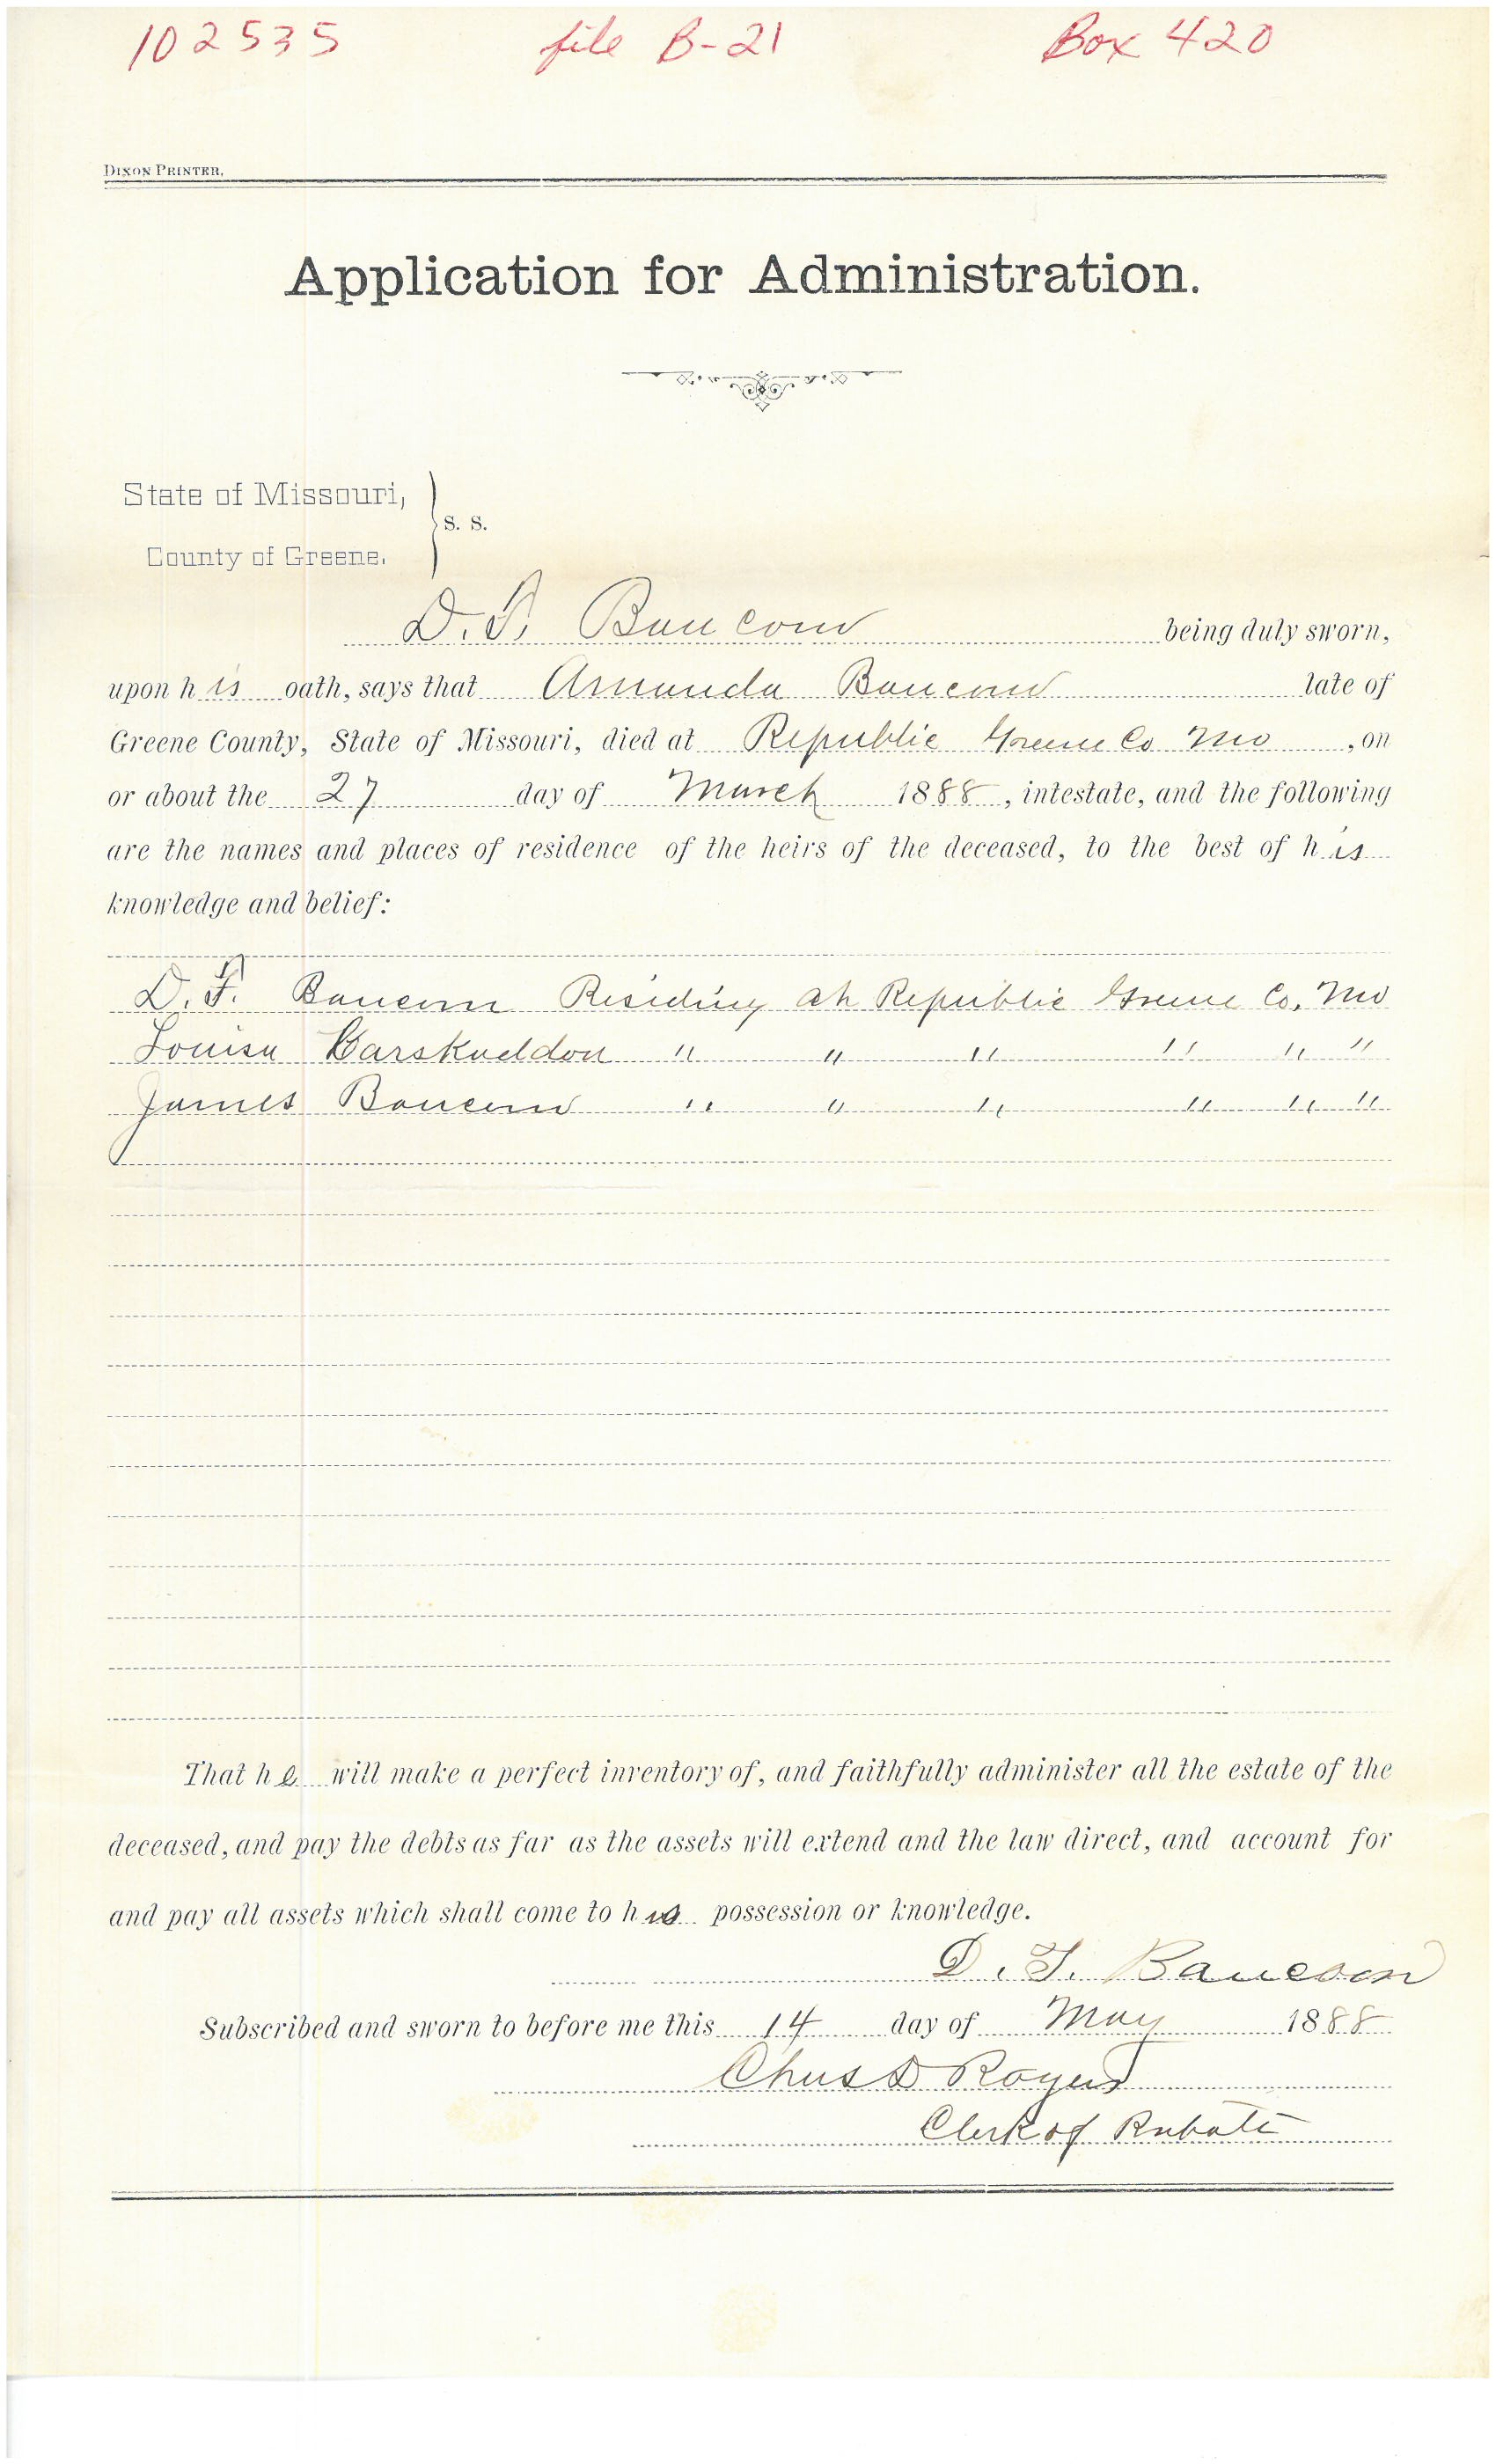 102535 file B-21 Box 420
DIXON PRINTER.
Application for Administration.
State of Missouri,
S. S.
County of Greene.
D. F. Baucom being duly sworn,
upon his oath, says that Amanda Baucom late of
Greene County, State of Missouri, died at Republic Greene Co Mo, on
or about the 27 day of March 1888, intestate, and the following
are the names and places of residence of the heirs of the deceased, to the best of his
knowledge and belief:
D. F. Baucom Residing at Republic Greene Co, Mo
Louisa " " " " " "
James Baucom " " " " " "
That he will make a perfect inventory of, and faithfully administer all the estate of the
deceased, and pay the debts as far as the assets will extend and the law direct, and account for
and pay all assets which shall come to his possession or knowledge.
D. F. Baucom
Subscribed and sworn to before me this 14 day of May 1888
Chas D Rogers
Clerk of Probate